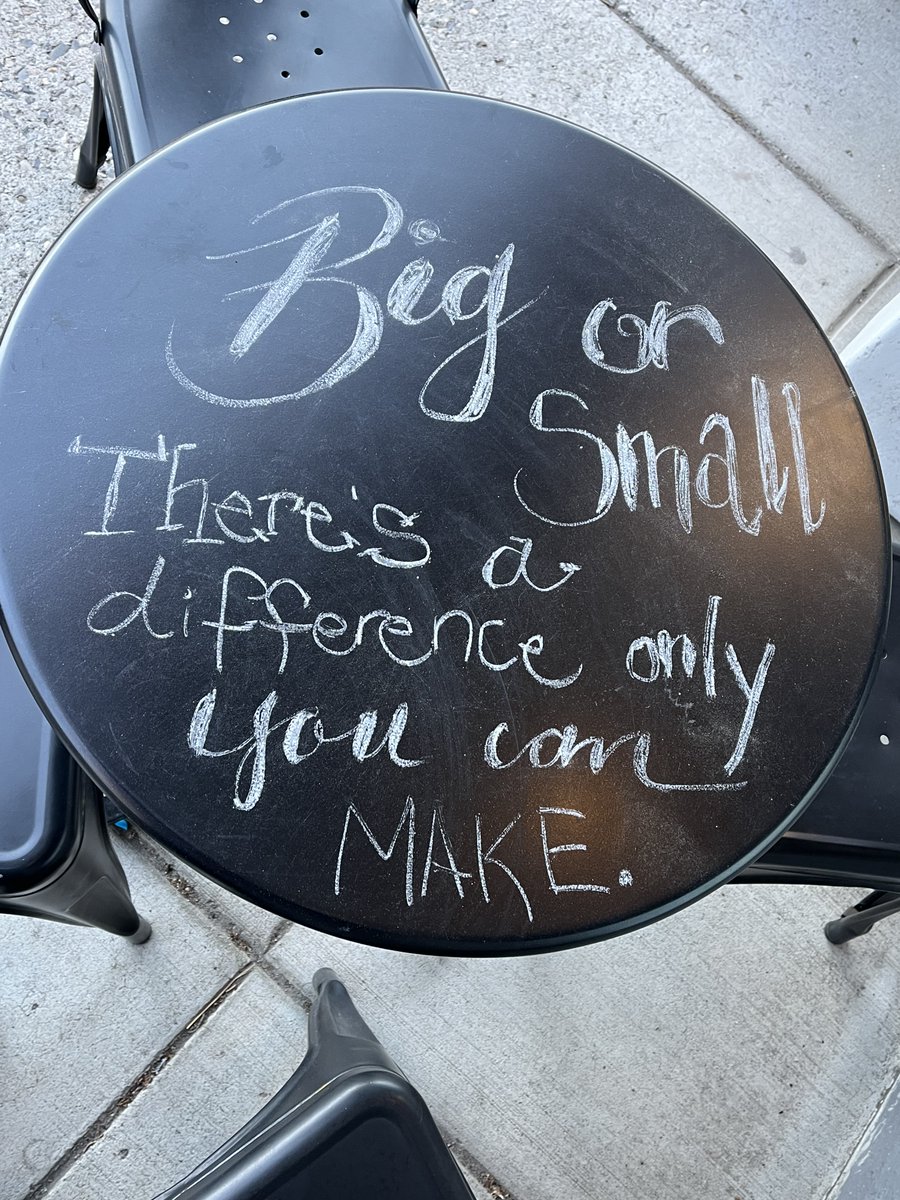 Big or
Small
There's a
difference only
you can
MAKE.